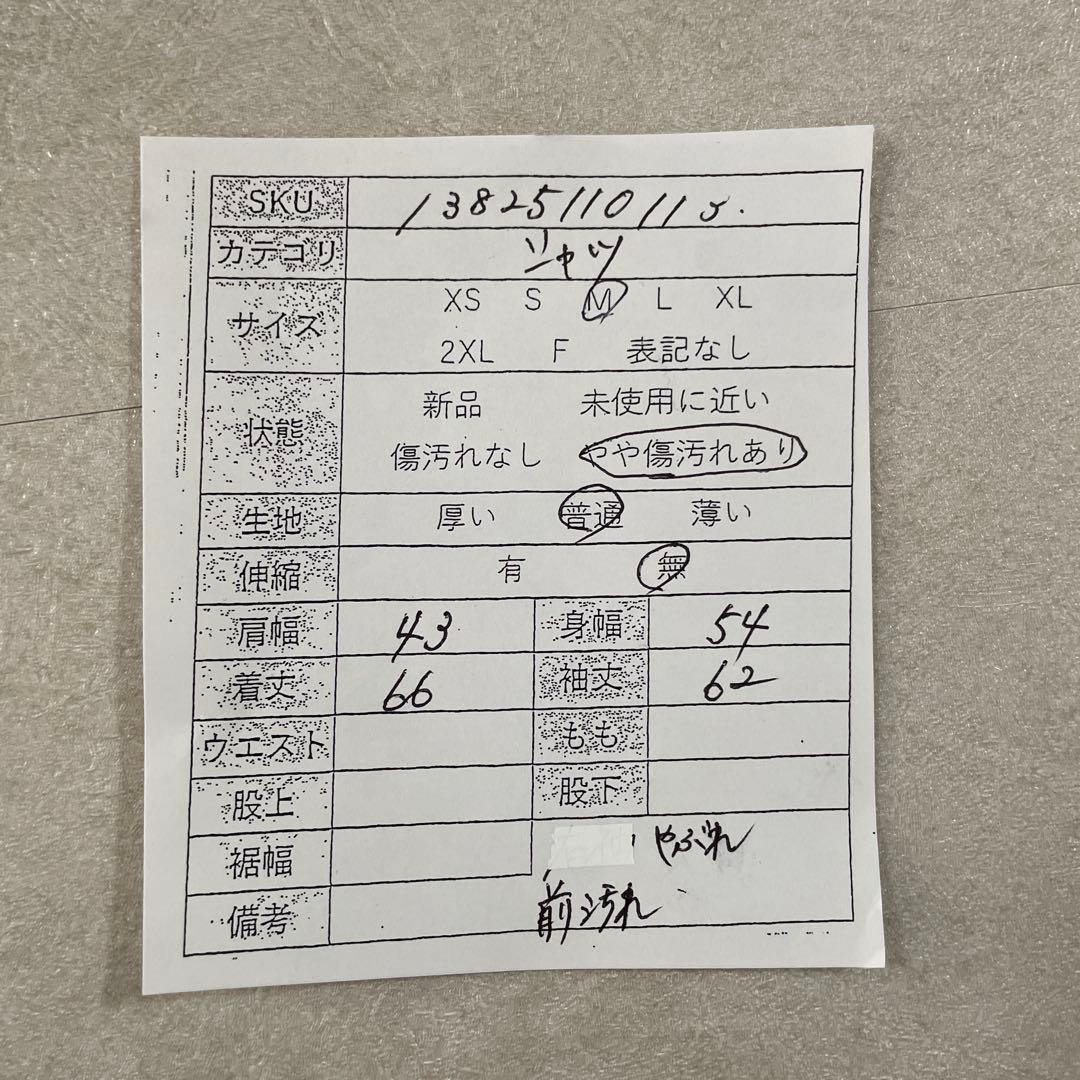 SKU 13825110115.
カテゴリ シャツ
サイズ XS S M L XL
2XL F 表記なし
状態 新品 未使用に近い
傷汚れなし やや傷汚れあり
生地 厚い 普通 薄い
伸縮 有 無
肩幅 43 身幅 54
着丈 66 袖丈 62
ウエスト もも
股上 股下
裾幅 やぶれ
備考 前汚れ